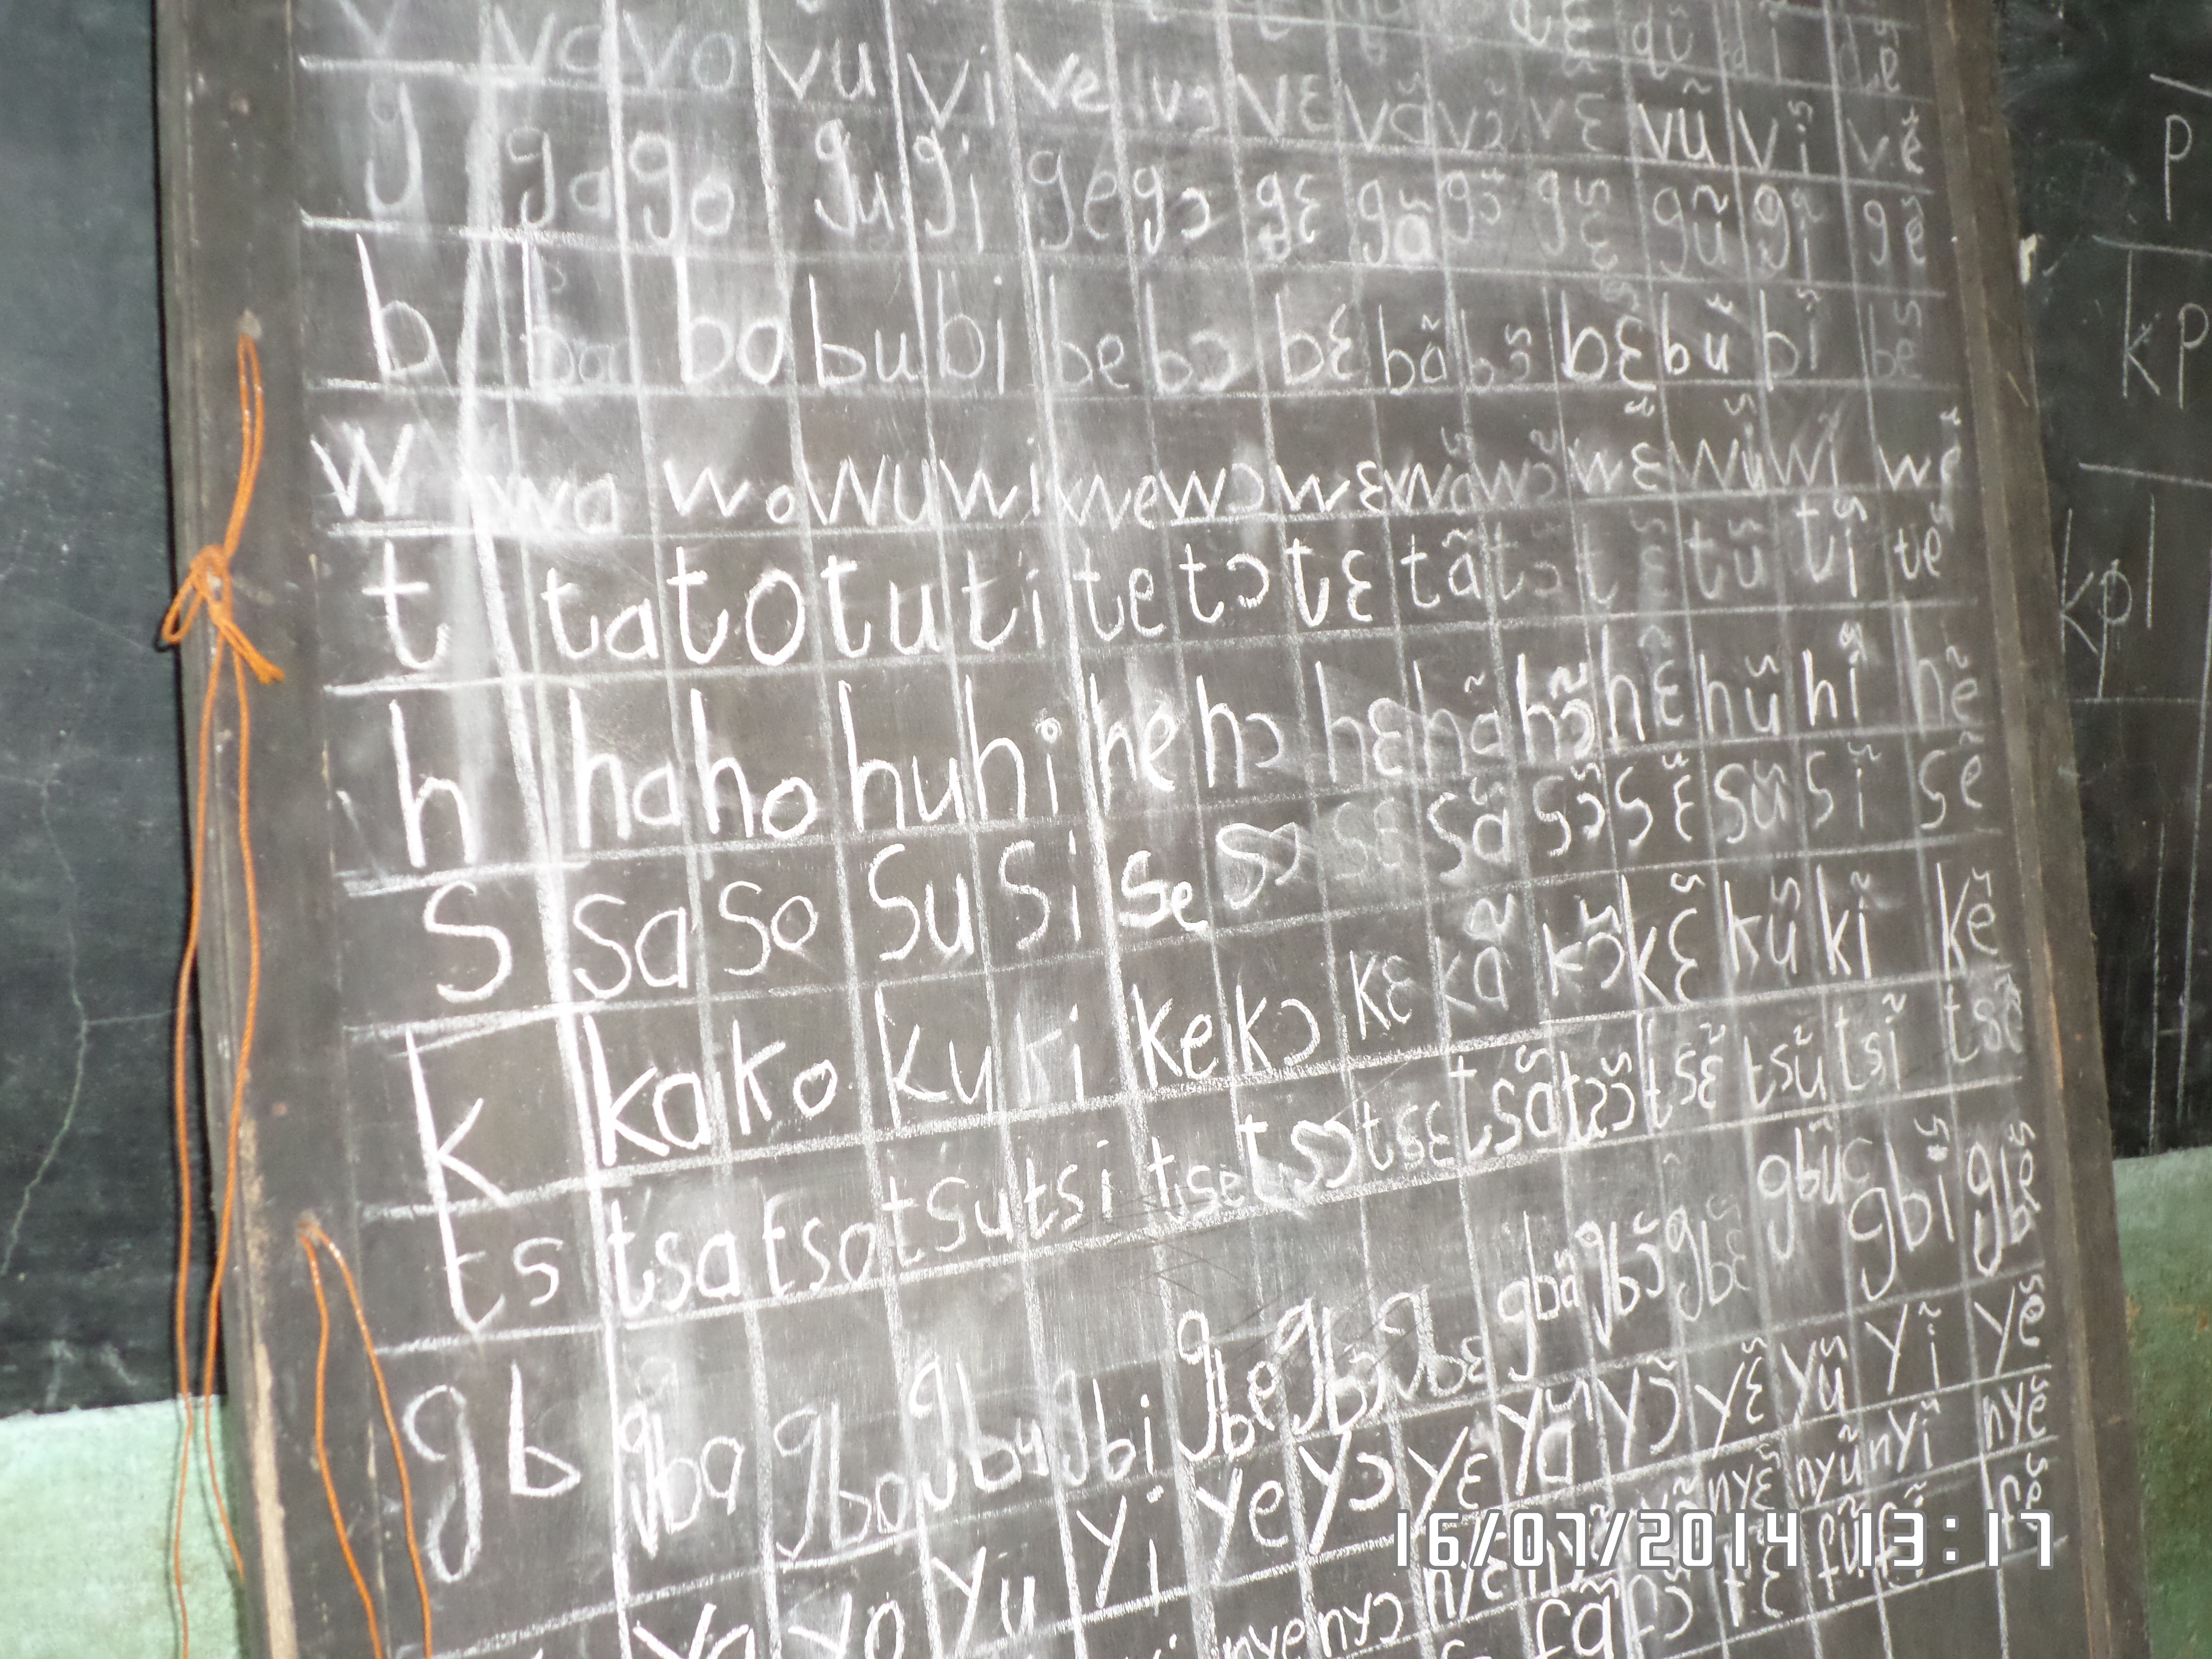 v va vo vu vi ve vɔ vɛ vã vɔ̃ vɛ̃ vũ vĩ vẽ
g ga go gu gi ge gɔ gɛ gã gɔ̃ gɛ̃ gũ gĩ gẽ
b ba bo bu bi be bɔ bɛ bã bɔ̃ bɛ̃ bũ bĩ bẽ
w wa wo wu wi we wɔ wɛ wã wɔ̃ wɛ̃ wũ wĩ wẽ
t ta to tu ti te tɔ tɛ tã tɔ̃ tɛ̃ tũ tĩ tẽ
h ha ho hu hi he hɔ hɛ hã hɔ̃ hɛ̃ hũ hĩ hẽ
s sa so su si se sɔ sɛ sã sɔ̃ sɛ̃ sũ sĩ sẽ
k ka ko ku ki ke kɔ kɛ kã kɔ̃ kɛ̃ kũ kĩ kẽ
ts tsa tso tsu tsi tse tsɔ tsɛ tsã tsɔ̃ tsɛ̃ tsũ tsĩ tsẽ
gb gba gbo gbu gbi gbe gbɔ gbɛ gbã gbɔ̃ gbɛ̃ gbũ gbĩ
ya yo yu yi ye yɔ yɛ yã yɔ̃ yɛ̃ yũ yĩ yẽ
nye nyɔ nyɛ̃ nyũ nyĩ nyẽ
fã fɔ̃ fũ fĩ fẽ
p
kp
kpl
16/07/2014 13:17